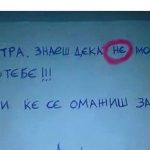 ТРА, ЗНАЕШ ДЕКА НЕ МО
ТЕБЕ !!!
И ЌЕ СЕ ОМАЖИШ ЗА